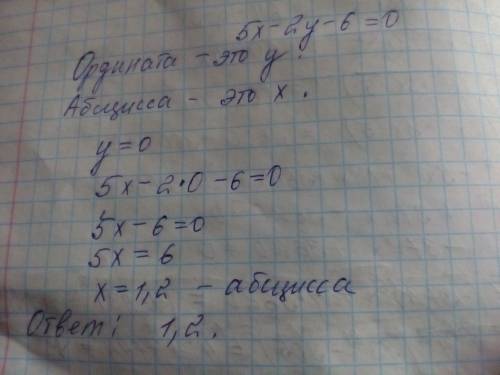 5x - 2y - 6 = 0
Ордината - это y.
Абсцисса - это x.
y = 0
5x - 2·0 - 6 = 0
5x - 6 = 0
5x = 6
x = 1,2 - абсцисса
Ответ: 1,2.